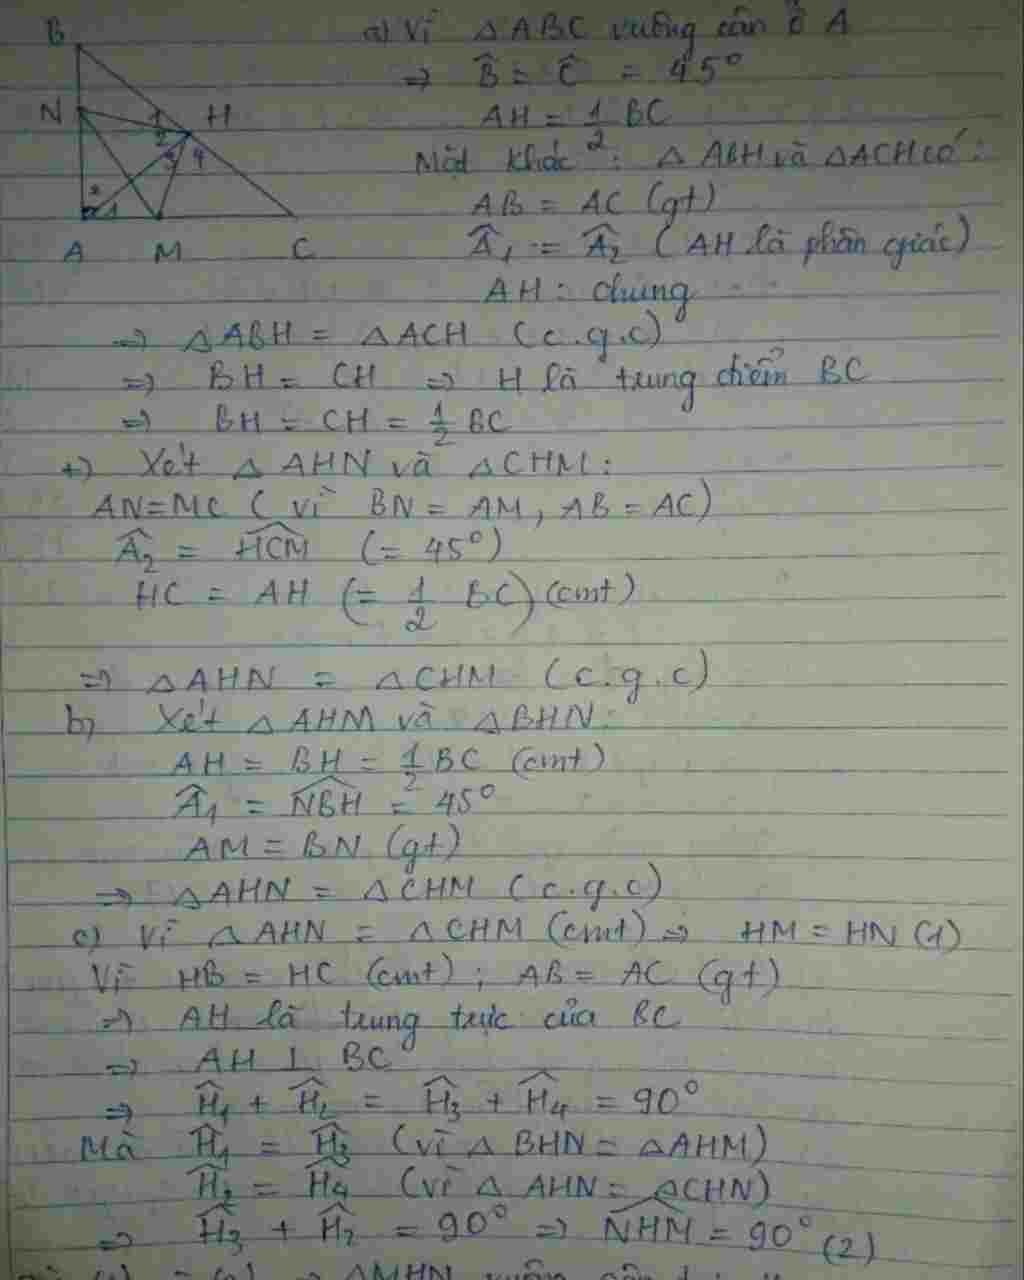 B
N
H
1
2
3
4
2
1
A M C
a) Vì △ABC vuông cân ở A
=> B̂ = Ĉ = 45°
AH = 1/2 BC
Mặt khác: △ABH và △ACH có:
AB = AC (gt)
Â₁ = Â₂ (AH là phân giác)
AH : chung
=> △ABH = △ACH (c.g.c)
=> BH = CH => H là trung điểm BC
=> BH = CH = 1/2 BC
+) Xét △AHN và △CHM:
AN=MC (vì BN = AM, AB = AC)
Â₂ = HCM^ (= 45°)
HC = AH (= 1/2 BC) (cmt)
=> △AHN = △CHM (c.g.c)
b) Xét △AHM và △BHN:
AH = BH = 1/2 BC (cmt)
Â₁ = NBH^ = 45°
AM = BN (gt)
=> △AHN = △CHM (c.g.c)
c) Vì △AHN = △CHM (cmt) => HM = HN (1)
Vì HB = HC (cmt); AB = AC (gt)
=> AH là trung trực của BC
=> AH ⊥ BC
=> Ĥ₁ + Ĥ₂ = Ĥ₃ + Ĥ₄ = 90°
Mà Ĥ₁ = Ĥ₃ (vì △BHN = △AHM)
Ĥ₂ = Ĥ₄ (vì △AHN = △CHN)
=> Ĥ₃ + Ĥ₂ = 90° => NHM^ = 90° (2)
=> △MHN vuông cân